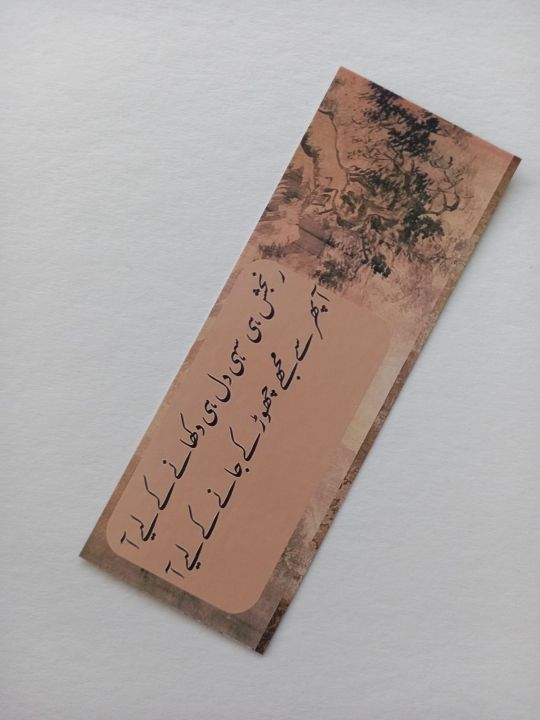 رنجش ہی سہی دل ہی دکھانے کے لیے آ
آ پھر سے مجھے چھوڑ کے جانے کے لیے آ